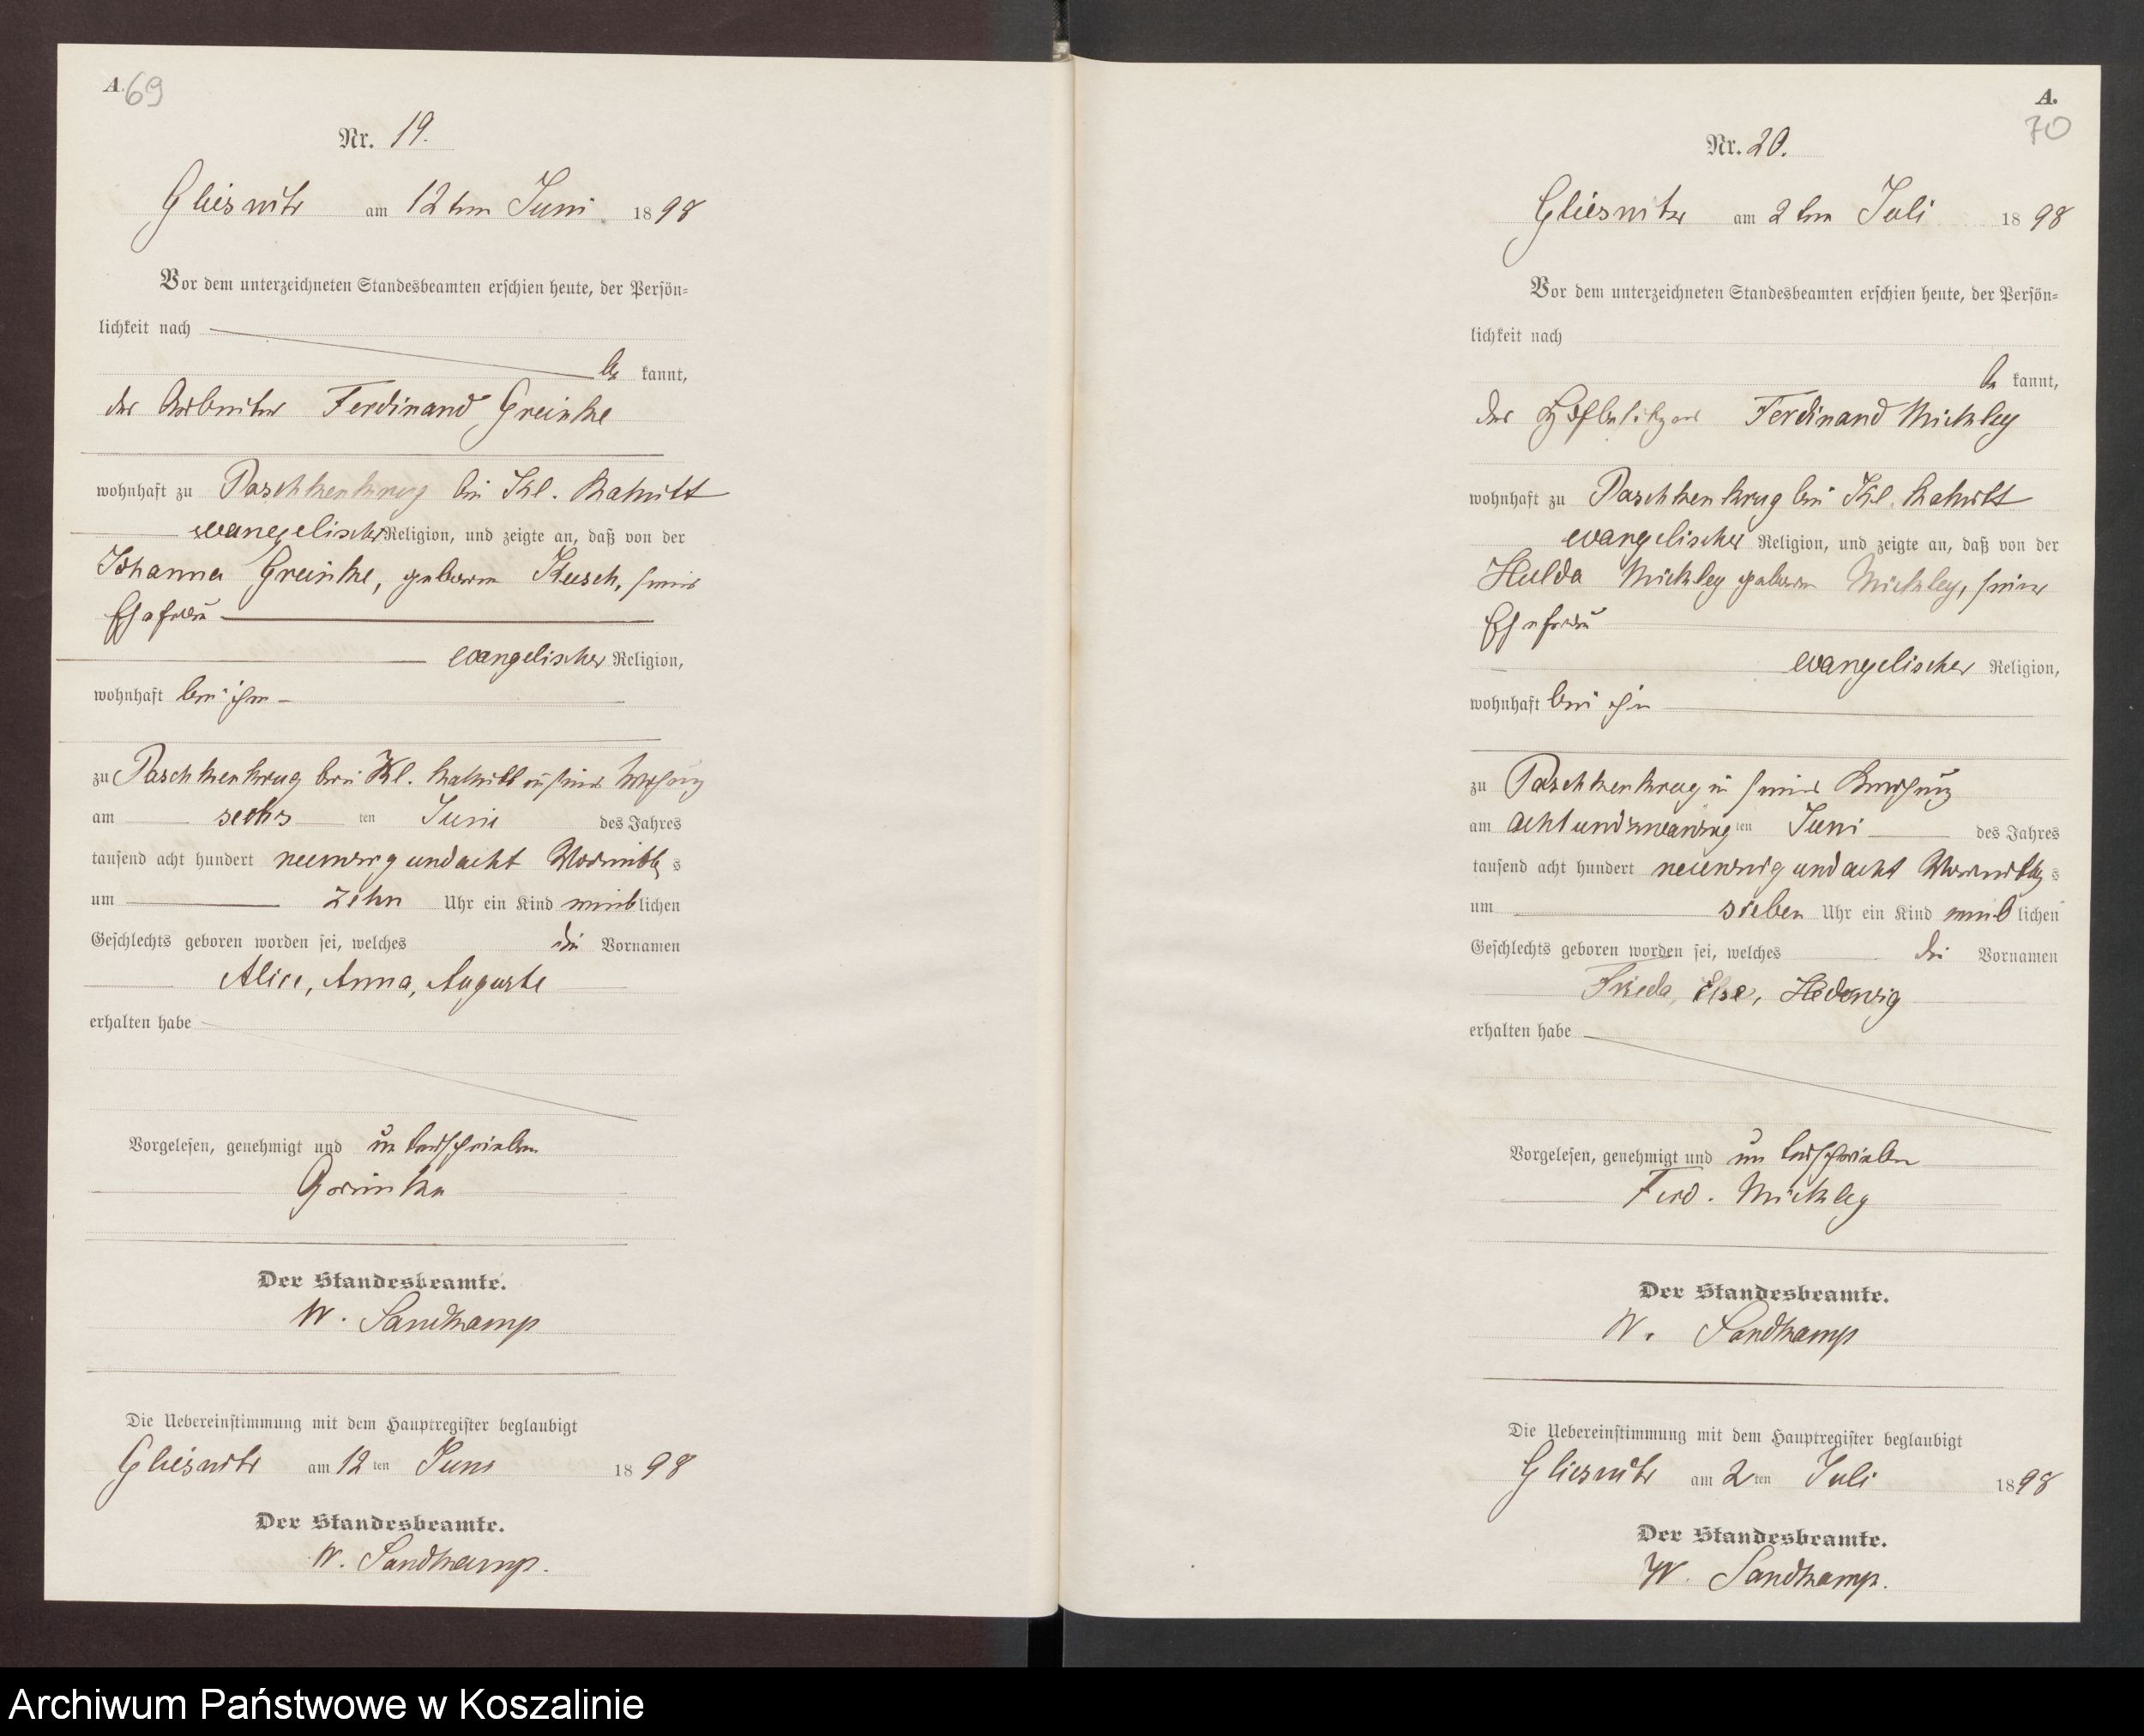 A. 69
Nr. 19.
Gliesnitz am 12ten Juni 1898
Vor dem unterzeichneten Standesbeamten erschien heute, der Persön-
lichkeit nach
be kannt,
der Arbeiter Ferdinand Greinke
wohnhaft zu Paschkenkrug bei Kl.
evangelischer Religion, und zeigte an, daß von der
Johanna Greinke, geboren seine
Ehefrau
evangelischer Religion,
wohnhaft bei ihm
zu Paschkenkrug bei Kl. in seiner Wohnung
am sechs ten Juni des Jahres
tausend acht hundert neunzig und acht Vormittags
um zehn Uhr ein Kind weiblichen
Geschlechts geboren worden sei, welches die Vornamen
Alice, Anna, Auguste
erhalten habe
Vorgelesen, genehmigt und unterschrieben
Greinke
Der Standesbeamte.
W. Sandkamp
Die Uebereinstimmung mit dem Hauptregister beglaubigt
Gliesnitz am 12ten Juni 1898
Der Standesbeamte.
W. Sandkamp.
A.
70
Nr. 20.
Gliesnitz am 2ten Juli 1898
Vor dem unterzeichneten Standesbeamten erschien heute, der Persön-
lichkeit nach
be kannt,
der Hofbesitzer Ferdinand Mickley
wohnhaft zu Paschkenkrug bei Kl.
evangelischer Religion, und zeigte an, daß von der
Hulda Mickley geboren Mickley, seiner
Ehefrau
evangelischer Religion,
wohnhaft bei ihm
zu Paschkenkrug in seiner
am achtundzwanzigten Juni des Jahres
tausend acht hundert neunzig und acht Vormittags
um sieben Uhr ein Kind weiblichen
Geschlechts geboren worden sei, welches die Vornamen
Frieda, Else, Hedewig
erhalten habe
Vorgelesen, genehmigt und unterschrieben
Ferd. Mickley
Der Standesbeamte.
W. Sandkamp
Die Uebereinstimmung mit dem Hauptregister beglaubigt
Gliesnitz am 2ten Juli 1898
Der Standesbeamte.
W. Sandkamp.
Archiwum Państwowe w Koszalinie